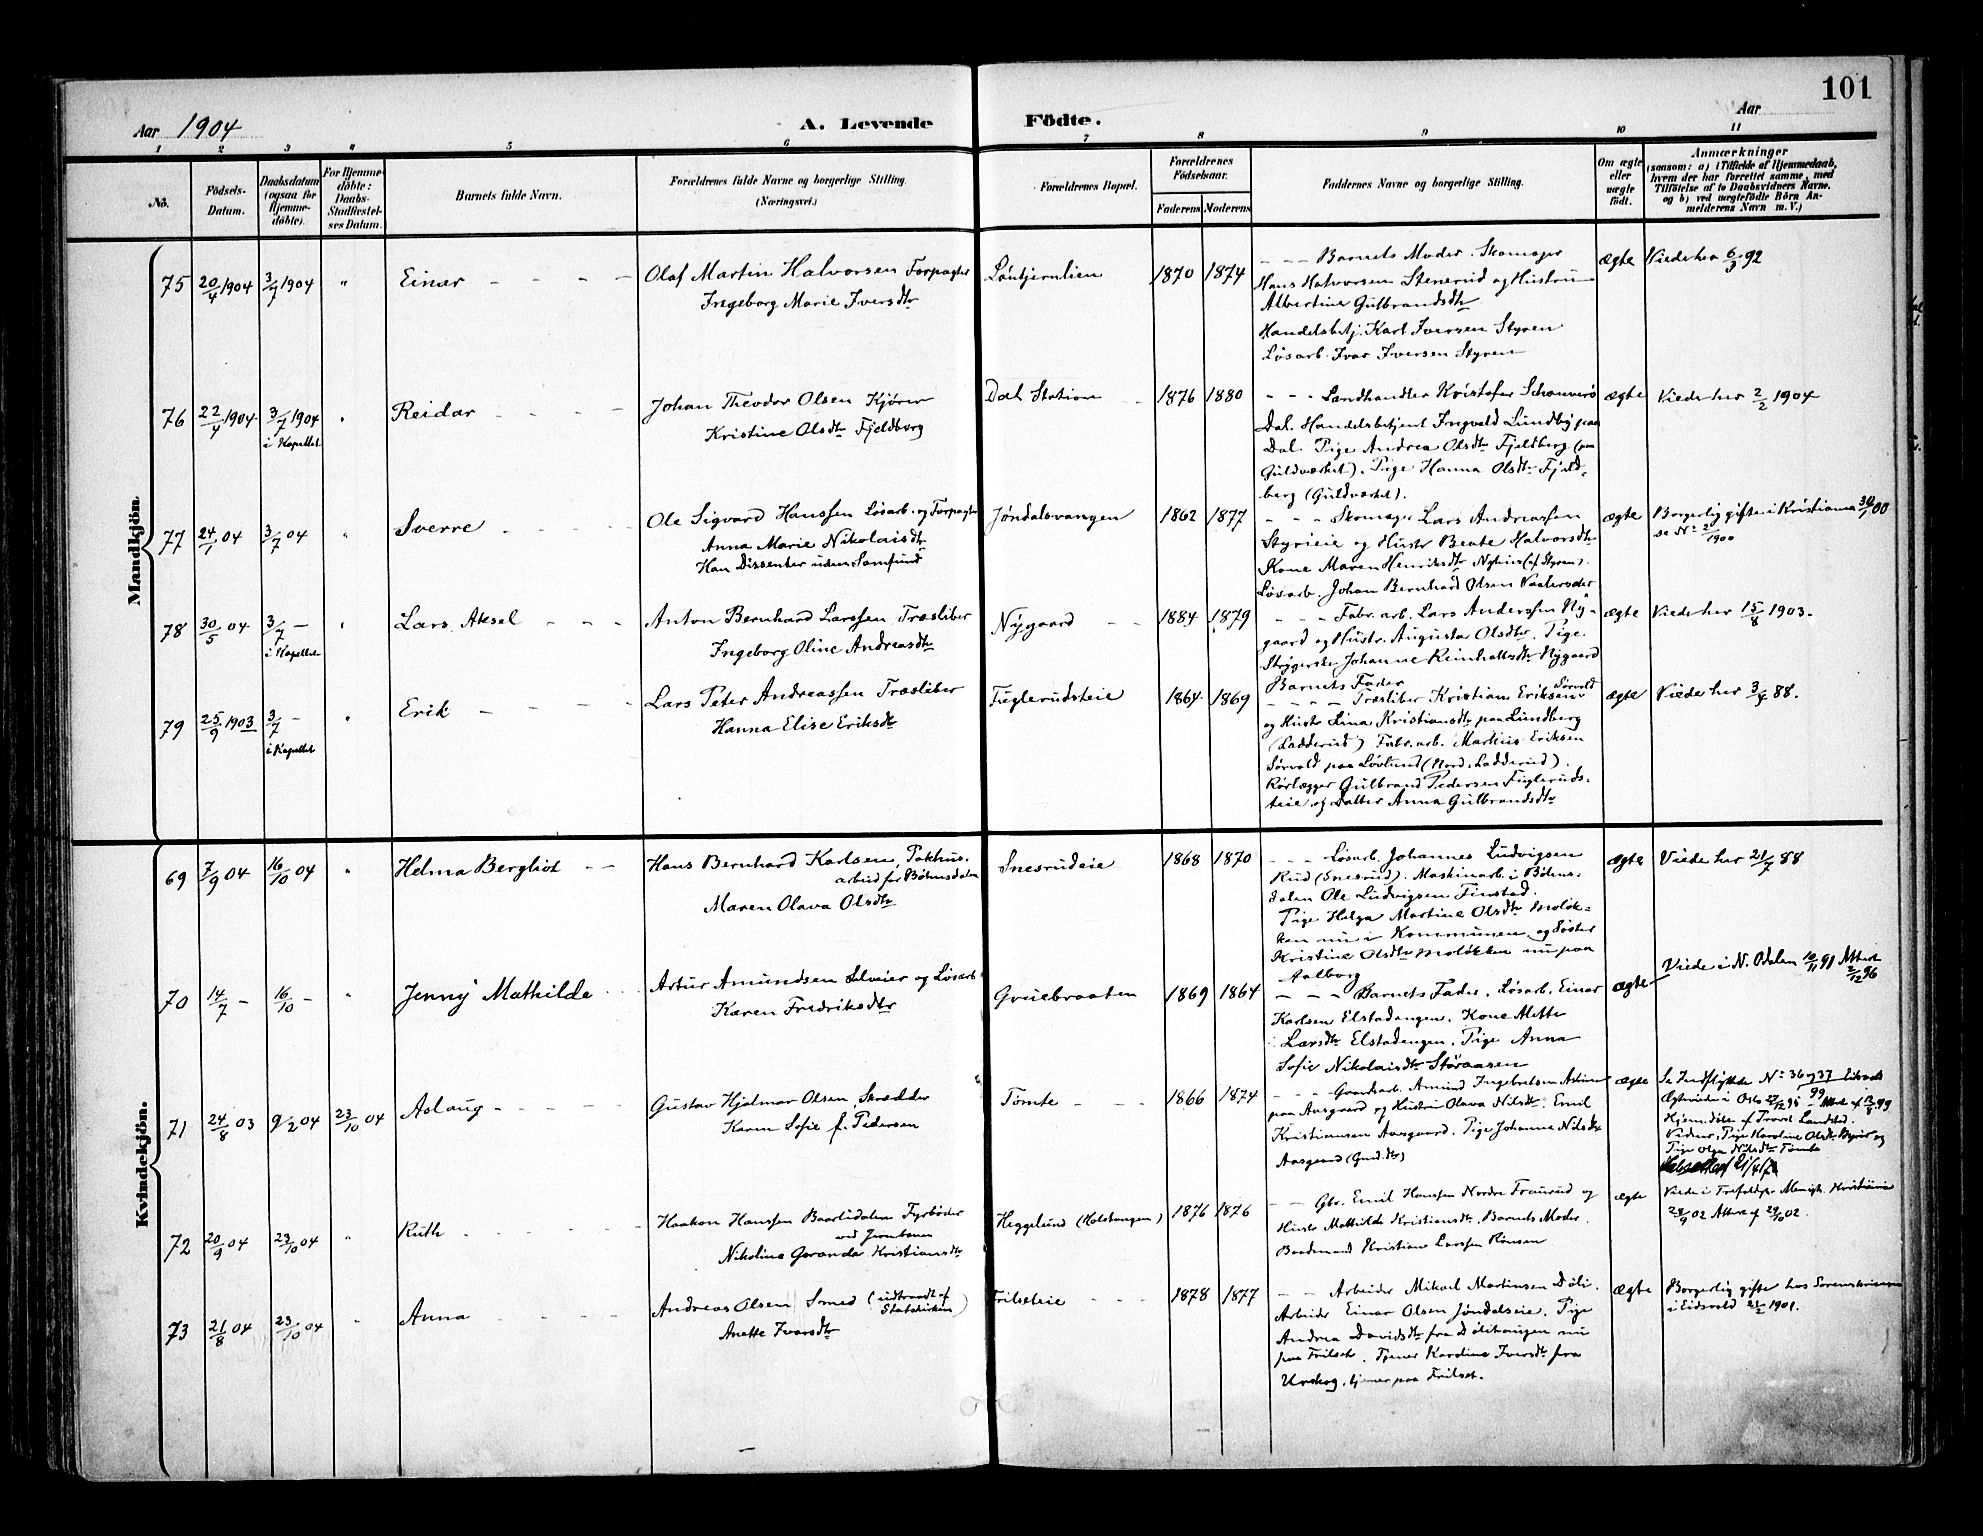 101
Aar 1904
A. Levende Födte.
Aar
1 2 3 4 5 6 7 8 9 10 11
No.
Födsels-Datum.
Daabsdatum (ogsaa for Hjemme-döbte).
For Hjemme-döbte: Daabs-Stadfæstel-ses Datum.
Barnets fulde Navn.
Forældrenes fulde Navne og borgerlige Stilling. (Næringsvei.)
Forældrenes Bopæl.
Forældrenes Födselsaar.
Faderens Moderens
Faddernes Navne og borgerlige Stilling.
Om ægte eller uægte födt.
Anmærkninger
(saasom: a) i Tilfælde af Hjemmedaab, hvem der har forrettet samme, med Tilföielse af to Daabsvidners Navne, og b) ved uægtefödte Börn Anmelderens Navn m. V.)
Mandkjön.
75 20/4 1904 3/7 1904 " Einar
Olaf Martin Halvorsen Forpagter
Ingeborg Marie Iversdtr
Løntjernlien 1870 1874
Barnets Moder. Skomager
Hans Halvorsen Stenerud og Hustru
Albertine Gulbrandsdtr
Handelsbetj. Karl Iversen Styren
Løsarb. Ivar Iversen Styren
ægte Viede her 6/3 92
76 22/4 1904 3/7 1904 i Kapellet " Reidar
Johan Theodor Olsen Kjører
Kristine Olsdtr Fjeldberg
Dal Station 1876 1880
Landhandler Kristofer
Dal. Handelsbetjent Ingvald Lundby paa
Dal. Pige Andrea Olsdtr Fjeldberg (paa
Guldværket). Pige Hanna Olsdtr Fjeld-
berg (Guldværket).
ægte Viede her 2/2 1904
77 24/1 04 3/7 04 " Sverre
Ole Sigvard Hanssen Løsarb. og Forpagter
Anna Marie Nikolaisdtr
Han Dissenter uden Samfund
Jøndalsvangen 1862 1877
Skomager Lars Andreassen
Styrieie og Hustr Beate Halvorsdtr
Kone Maren Henriksdtr (af Styren).
Løsarb. Johan Bernhard Olsen
ægte Borgerlig gifte i Kristiania 30/1 00
se No 2/1900
78 30/5 04 3/7 – i Kapellet " Lars Aksel
Anton Bernhard Larssen Træsliber
Ingeborg Oline Andreasdtr
Nygaard 1884 1879
Fabr. arb. Lars Anderssen Ny-
gaard og Hustr. Augusta Olsdtr. Pige
Strygerske Johanne Reinholtsdtr Nygaard
ægte Viede her 15/8 1903.
79 25/9 1903 3/7 – i Kapellet " Erik
Lars Peter Andreassen Træsliber
Hanna Elise Eriksdtr
Fuglerudseie 1864 1869
Barnets Fader
Træsliber Kristian Eriksen Sørvold
og Hustr Lina Kristiansdtr paa Lundberg
(Ladderud) Fabr. arb. Markus Eriksen
Sørvold paa Løvlund (Nord. Ladderud).
Rørlægger Gulbrand Pedersen Fugleruds-
eie og Datter Anna Gulbrandsdtr
ægte Viede her 3/4 88.
Kvindekjön.
69 7/9 04 16/10 04 " Helma Bergliot
Hans Bernhard Karlsen, Pakhus-
arbeid for Bøhnsdalen
Maren Olava Olsdtr
Snesrudeie 1868 1870
Løsarb. Johannes Ludvigsen
Rud (Snesrud). Maskinarb. i Bøhns-
dalen Ole Ludvigsen Finstad.
Pige Helga Martine Olsdtr Moløk-
ken nu i Kommunen og Søster
Kristine Olsdtr Moløkken nu paa
Aalborg
ægte Viede her 21/7 88
70 14/7 – 16/10 – " Jenny Mathilde
Artur Amundsen Selveier og Løsarb
Karen Fredriksdtr
Gruebraaten 1869 1864
Barnets Fader. Løsarb. Einar
Karlsen Elstadengen. Kone Mette
Larsdtr Elstadengen. Pige Anna
Sofie Nikolaisdtr Støraasen
ægte Viede i N. Odalen 10/11 91 Attest 2/12 96
71 24/8 03 9/2 04 23/10 04 Aslaug
Gustav Hjalmar Olsen, Skrædder
Karen Sofie f. Pedersen
Tømte 1866 1874
Gaardarb. Amund Ingebretsen
paa Aasgaard og Hustru Olava Nilsdtr. Emil
Kristiansen Aasgaard. Pige Johanne Nilsdtr
Aasgaard
ægte Se Indflyttede No 36 og 37 99
Ægteviede i Oslo 27/12 95
Hjem. døbt af Provst Landstad.
Vidner: Pige Karoline Olsdtr og
Pige Olga Nilsdtr Tømte
72 20/9 04 23/10 04 " Ruth
Haakon Hanssen Baarlidalen Fyrbøder
ved Jernbanen
Nikolina Geranda Kristiansdtr
Heggelund (Holshaugen) 1876 1876
Gbr. Emil Hanssen Nordre Fraurud og
Hustr Mathilde Kristiansdtr. Barnets Moder.
Baadsmand Kristian Larssen
ægte Viede i Trefoldigh. Menigh. Kristiania
28/9 02 Attest af 29/10 02.
73 21/8 04 23/10 04 " Anna
Andreas Olsen Smed (udtraadt af Statskirken)
Anette Ivarsdtr
Frilseteie 1878 1877
Arbeider Mikael Martinsen Døli.
Arbeider Einar Olsen Jøndalseie. Pige
Andrea Davidsdtr fra Dølihaugen nu
paa Frilset. Tjener Karoline Iversdtr fra
Urskog, tjener paa Frilset.
ægte Borgerlig gifte hos Sorenskriveren
i Eidsvold 21/2 1901.